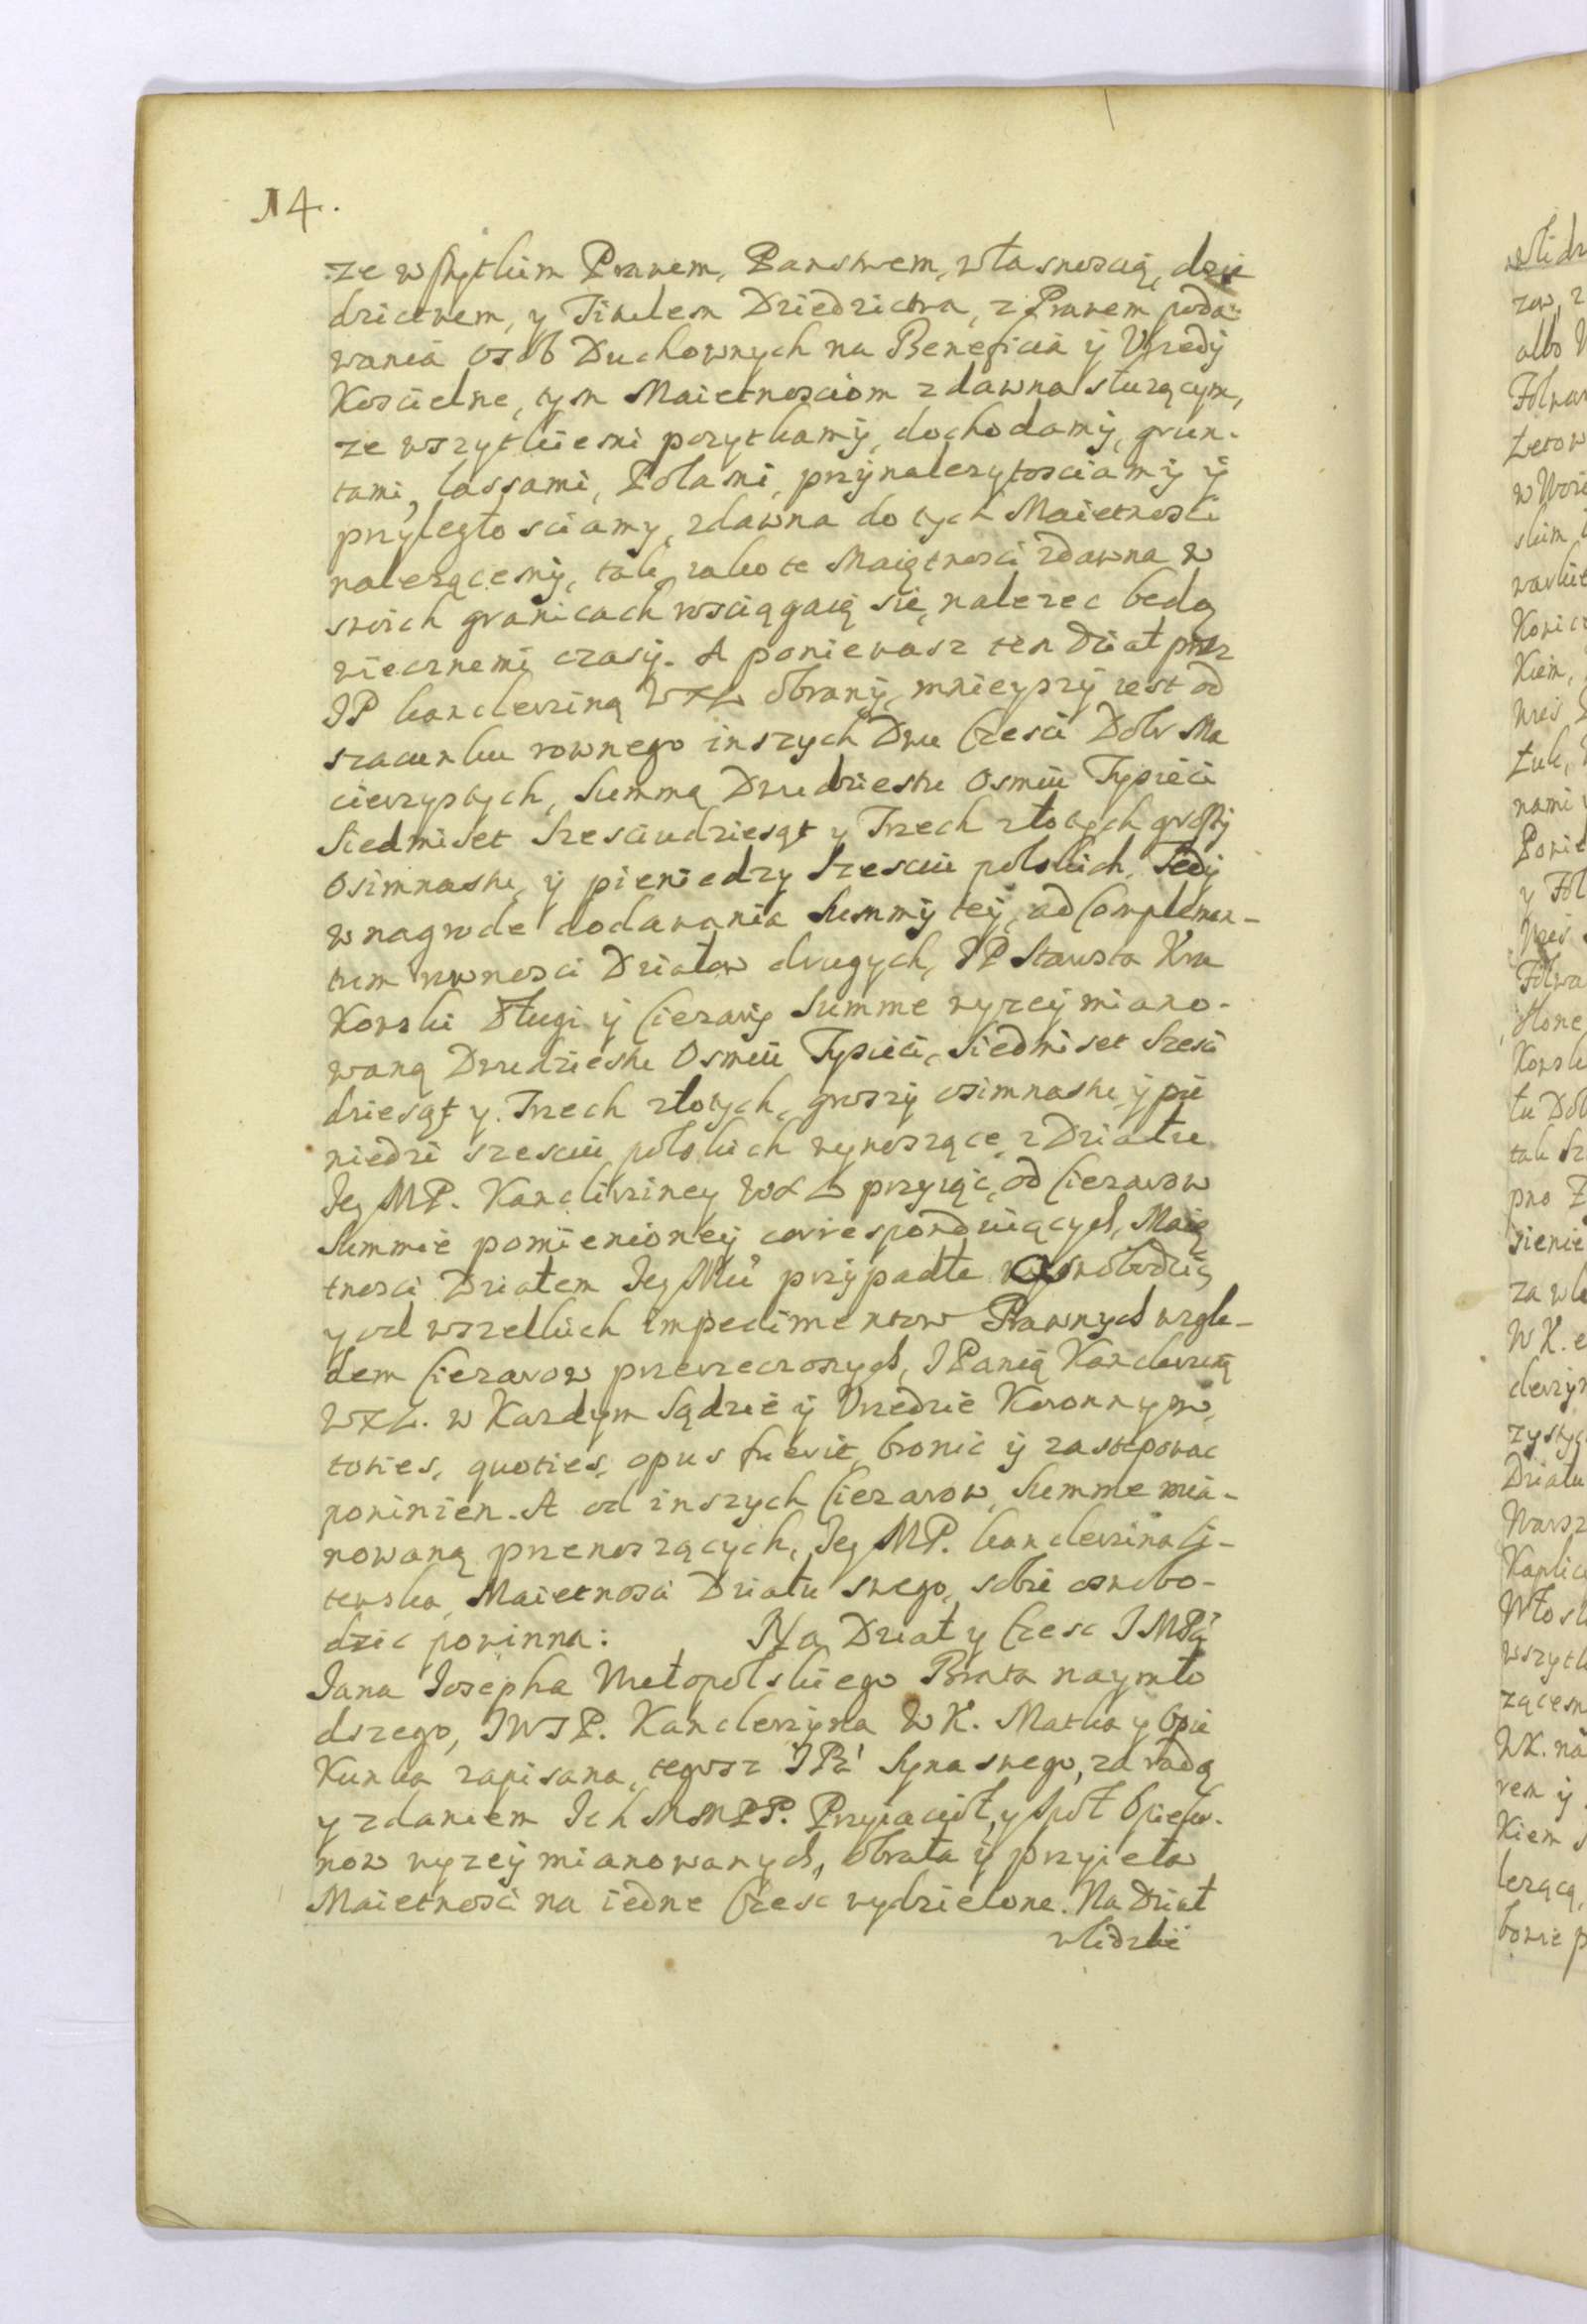 14.
ze wszytkim Prawem, Panstwem, własnoscią, dzie
dzictwem, y Titulem Dziedzictwa, z Prawem poda-
wania osob Duchownych na Beneficia ÿ Urzedÿ
Koscielne, tym Maietnosciom zdawna słuzącym,
ze wszytkiemi pozytkamÿ, dochodamÿ, grun-
tami, lassami, Polami, przÿnalezytosciamÿ ÿ
przyległosciamy, zdawna do tych Maietnosci
nalezącemÿ, tak, iako te Maiętnosci zdawna w
swoich granicach wsciągaią się, nalezec będą
wiecznemi czasÿ. A poniewasz ten Dział przez
JP kanclerziną WXL obranÿ, mnieyszÿ iest od
szacunku rownego inszych Dwu Czesci Dobr Ma
cierzystych, Summą Dwudziestu Osmiu Tysieci
Siedmiset Szesciudziesąt y Trzech złotych groszÿ
Osimnastu, ÿ pieniedzy Szesciu polskich, Tedÿ
w nagrode dodawania Summÿ teÿ, ad Complemen-
tum rownosci Działow drugych, JP Starosta Kra
Kowski Długi ÿ Cierary Summe wyzeÿ miano-
waną Dwudziestu Osmiu Tysieci, Siedmiset Szesci
dziesąt y Trzech złotych, groszÿ osimnastu ÿ pie
niedzi szesciu polskich wynoszące, z Działu
Jeg MP. Kanclirziney WXL przyiąc, od Ciezarow
Summie pomienioneÿ correspondvuiących, Maię
tnosci Działem Jeg Mci przÿpadłe oswobodzic,
y od wszelkich impedimentow Prawnych wzgle-
dem Ciezarow przerzeczonych, JPanią Kanclerziną
WXL. w Kazdym Sądzie ÿ Urzedzie Koronnym,
toties, quoties, opus fuerit, bronic ÿ zastepowac
powinien. A od inszych Ciezarow, Summe mia-
nowaną przenoszących, Jeg MP. kanclerzina Li-
tewska, Maietnosci Działu swego, sobie oswobo-
dzic powinna: Na Dział y Czesc JMPa
Jana Josepha Wielopolskiego Brata naymło
dszego, JWJP. Kanclerzyna WK. Matka y Opie
Kunka zapisana, tegosz JPa Syna swego, za radą
y zdaniem Ich MMPP. Przyiacioł, y Społ Opieku-
now wyzeÿ mianowanych, obrała ÿ przyieła
Maietnosci na iedne Czesc wydzielone. Na Dział